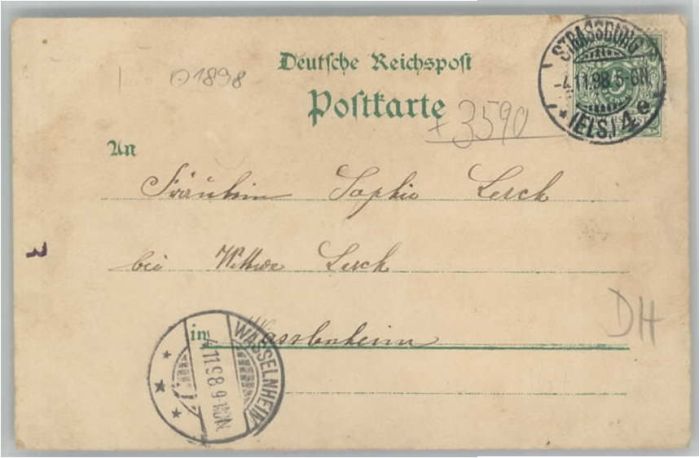 01898
Deutsche Reichspost
Postkarte
+3590
STRASSBURG
-4.11.98.5-6N.
* (ELS.) 4 e
An
Fräulein Sophie Lerch
bei Wittwe Lerch
in Wasselnheim
WASSELNHEIM
4.11.98.9-10N.
DH